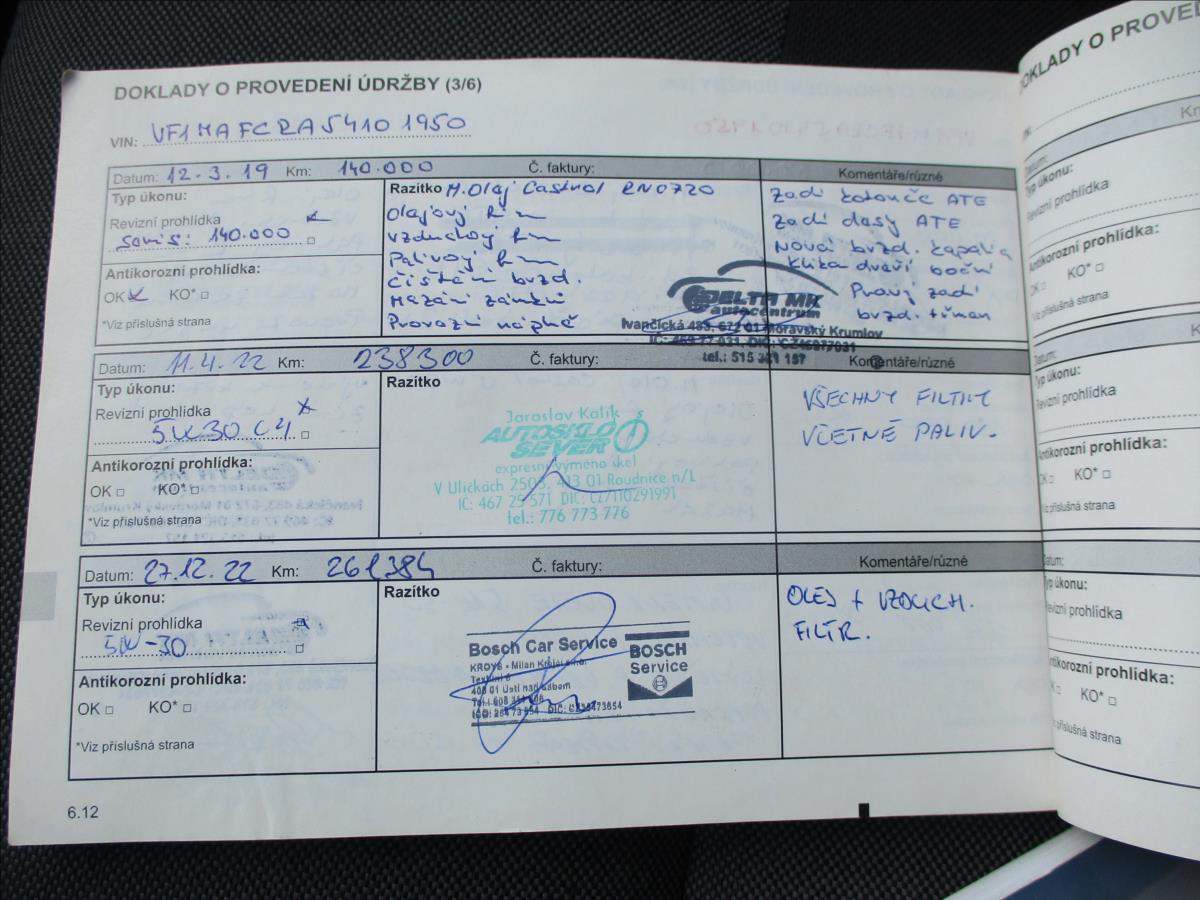 DOKLADY O PROVEDENÍ ÚDRŽBY (3/6)
VIN: VF1MAFCRA54101950
Datum: 12.3.19 Km: 140.000 Č. faktury: Komentáře/různé
Typ úkonu:
Revizní prohlídka
servis: 140.000
Antikorozní prohlídka:
OK KO*
*Viz příslušná strana
Razítko M.Olej Castrol RN0720
Olejový
Vzduchový
Palivový
Čištění brzd.
Mazání zámků
Provozní náplně
Zadí kotouče ATE
Zadí desy ATE
Nová brzd. kapalina
Klika dveří boční
Pravý zadí
brzd. třmen
DELTA MK
autocentrum
Ivančická 483, 672 01 Moravský Krumlov
tel.: 515 321 157
Datum: 11.4.22 Km: 238300 Č. faktury: Komentáře/různé
Typ úkonu:
Revizní prohlídka
5W30 C4
Antikorozní prohlídka:
OK KO*
*Viz příslušná strana
Razítko
Jaroslav Kolík
AUTOSKLO
SEVER
expresní výměna skel
V Uličkách 2505, 413 01 Roudnice n/L
IČ: 467 25 571 DIC: CZ7110291991
tel.: 776 773 776
VŠECHNY FILTRY
VČETNĚ PALIV.
Datum: 27.12.22 Km: 261384 Č. faktury: Komentáře/různé
Typ úkonu:
Revizní prohlídka
5W-30
Antikorozní prohlídka:
OK KO*
*Viz příslušná strana
Razítko
Bosch Car Service
KROYS - Milan
Textilní 6
400 01 Ústí nad Labem
BOSCH
Service
OLEJ + VZDUCH.
FILTR.
6.12
DOKLADY O PROVE
Datum:
Typ úkonu:
Revizní prohlídka
Antikorozní prohlídka:
KO*
příslušná strana
Datum:
úkonu:
Revizní prohlídka
Antikorozní prohlídka:
KO*
příslušná strana
úkonu:
Revizní prohlídka
Antikorozní prohlídka:
KO*
příslušná strana